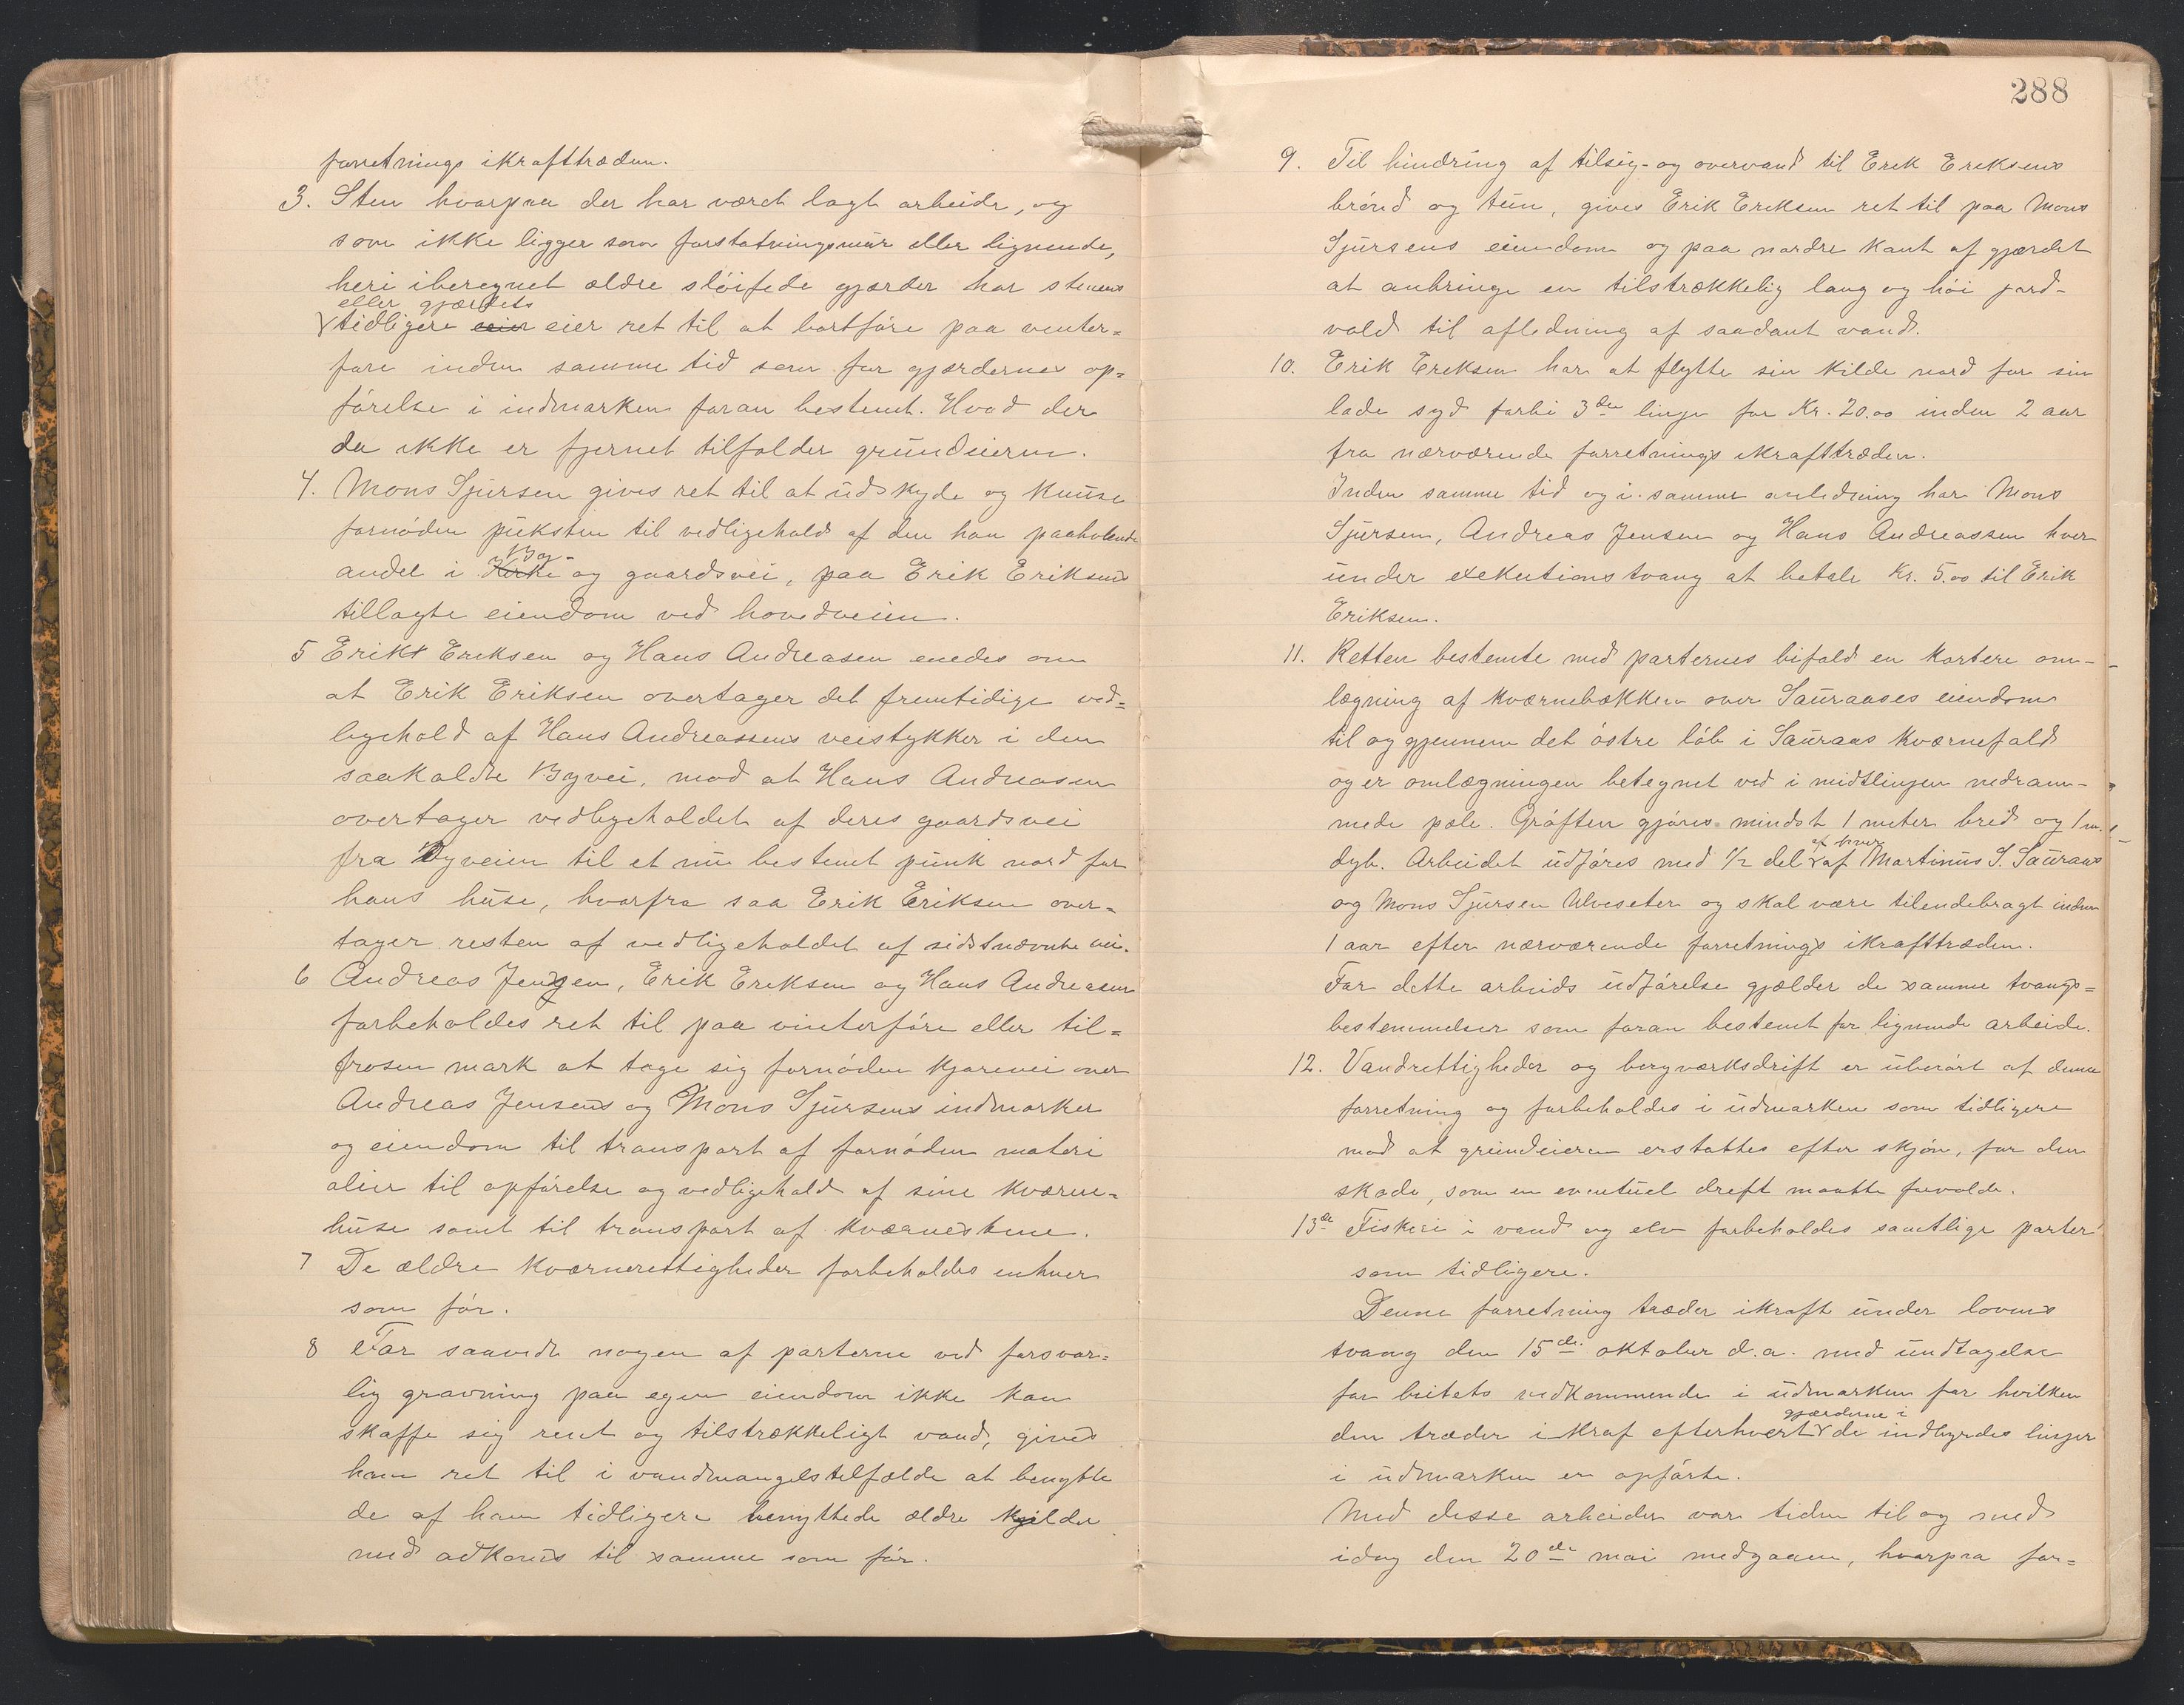 forretnings ikrafttræden.
3. Sten hvorpaa der har været lagt arbeide, og
som ikke ligger som forstøtningsmur eller lignende,
heri iberegnet ældre sløifede gjærder har stenens
eller gjærdets
tidligere eier eier ret til at bortføre paa vinter=
føre inden samme tid som for gjærdernes op=
førelse i indmarken foran bestemt. Hvad der
da ikke er fjernet tilfalder grundeieren.
4. Mons Sjursen gives ret til at udskyde og knuse
fornøden puksten til vedligehold af den han paahvilende
By-
andel i Kirke og gaardsvei, paa Erik Eriksens
tillagte eiendom ved hovedveien.
5 Erik Eriksen og Hans Andreasen enedes om
at Erik Eriksen overtager det fremtidige ved=
ligehold af Hans Andreassens veistykker i den
saakaldte Byvei, mod at Hans Andreasen
overtager vedligeholdet af deres gaardsvei
fra Byveien til et nu bestemt punk nord for
hans huse, hvorfra saa Erik Eriksen over=
tager resten af vedligeholdet af sidstnævnte vei.
6 Andreas Jensen, Erik Eriksen og Hans Andreasen
forbeholdes ret til paa vinterføre eller til=
frosen mark at tage sig fornøden kjørevei over
Andreas Jensens og Mons Sjursens indmarker
og eiendom til transport af fornøden materi
alier til opførelse og vedligehold af sine kværne=
huse samt til transport af kværnestene.
7 De ældre kværnerettigheder forbeholdes enhver
som før.
8 For saavidt nogen af parterne ved forsvar=
lig gravning paa egen eiendom ikke kan
skaffe sig rent og tilstrækkeligt vand, gives
ham ret til i vandmangelstilfælde at benytte
de af ham tidligere benyttede ældre kilder
med adkomst til samme som før.
288
9. Til hindring af tilsig- og overvand til Erik Eriksens
brønd og tun, gives Erik Eriksen ret til paa Mons
Sjursens eiendom og paa nordre kant af gjærdet
at anbringe en tilstrækkelig lang og høi jord-
vold til afledning af saadant vand.
10. Erik Eriksen har at flytte sin kilde nord for sin
lade syd forbi 3die linje for Kr. 20.00 inden 2 aar
fra nærværende forretnings ikrafttræden.
Inden samme tid og i samme anledning har Mons
Sjursen, Andreas Jensen og Hans Andreassen hver
under exekutionstvang at betale Kr. 5.00 til Erik
Eriksen.
11. Retten bestemte med parternes bifald en kortere om-
lægning af kværnebækken over Sauraases eiendom
til og gjennem det østre løb i Sauraas kværnefald
og er omlægningen betegnet ved i midtlinjen nedram-
mede pæle. Grøften gjøres mindst 1 meter bred og 1 m.
af hver
dyb. Arbeidet udføres med 1/2 del af Martinus S. Sauraas
og Mons Sjursen Ulveseter og skal være tilendebragt inden
1 aar efter nærværende forretnings ikrafttræden.
For dette arbeids udførelse gjælder de samme tvangs=
bestemmelser som foran bestemt for lignende arbeide.
12. Vandrettigheder og bergværksdrift er uberørt af denne
forretning og forbeholdes i udmarken som tidligere
mod at grundeieren erstattes efter skjøn, for den
skade, som en eventuel drift maatte forvolde.
13de Fiskeri i vand og elv forbeholdes samtlige parter
som tidligere.
Denne forretning træder ikraft under lovens
tvang den 15de oktober d.a. med undtagelse
for beitets vedkommende i udmarken for hvilken
gjærderne i
den træder i kraf efterhvert de indbyrdes linjer
i udmarken er opførte.
Med desse arbeider var tiden til og med
idag den 20de mai medgaaen, hvorpaa for=